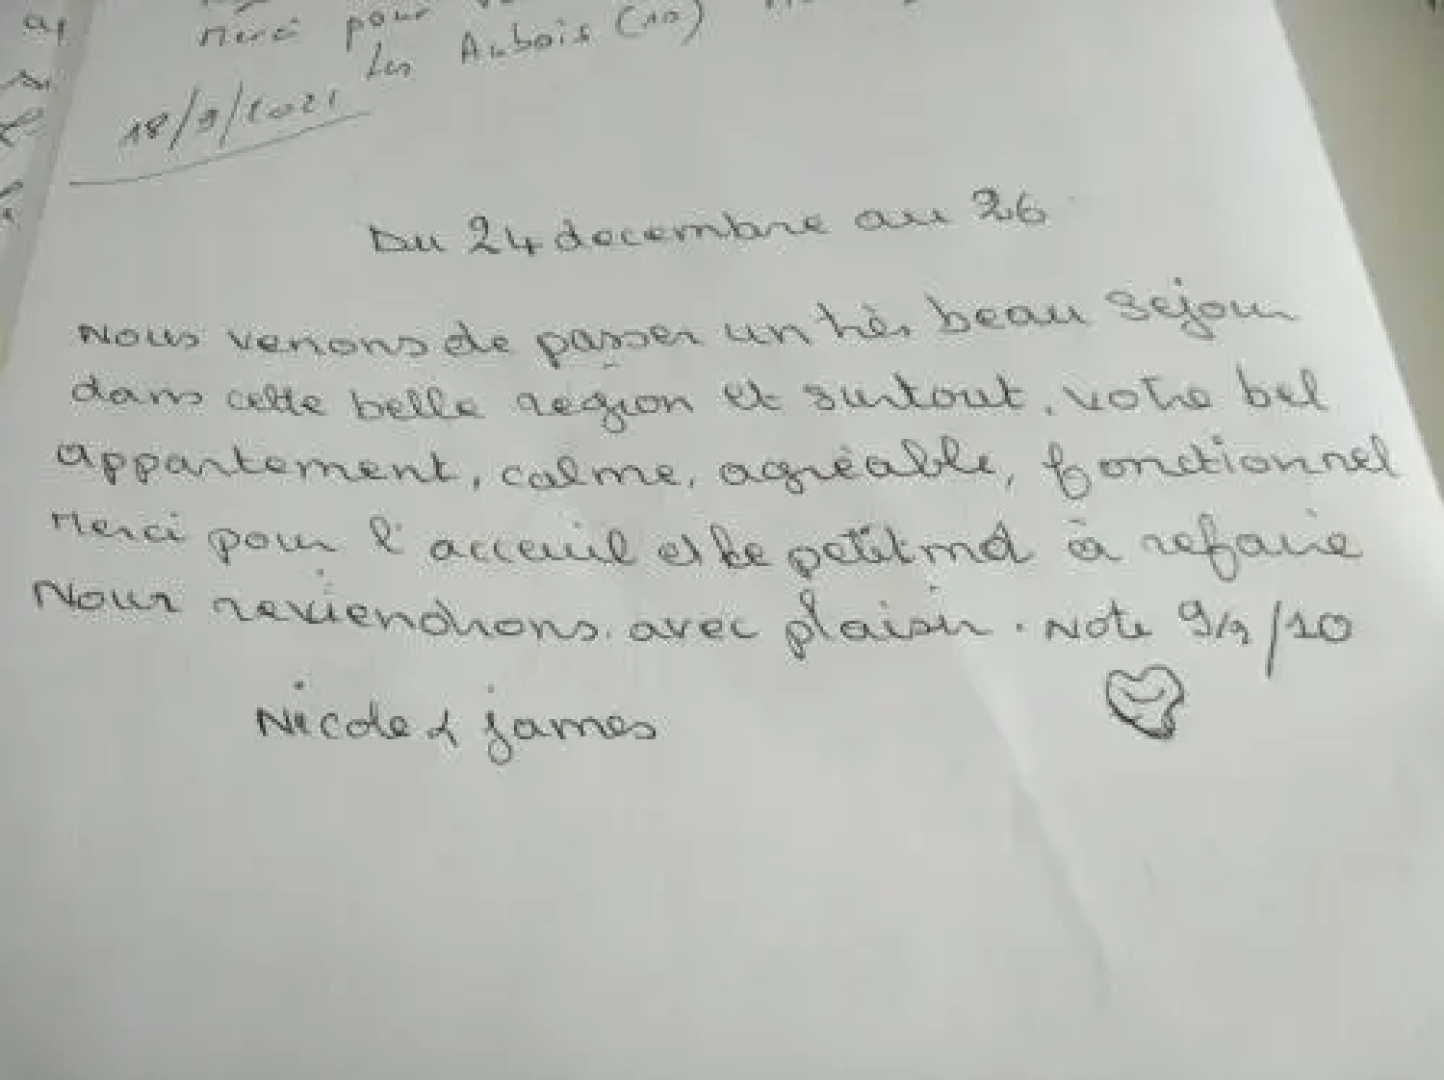 Merci pour
Les Aubois (10)
18/9/2021
Du 24 decembre au 26
Nous venons de passer un très beau sejour
dans cette belle region et surtout, votre bel
appartement, calme, agréable, fonctionnel
Merci pour l'acceuil et le petit mot à refaire
Nous reviendrons. avec plaisir. Note 9/9/10
Nicole & james